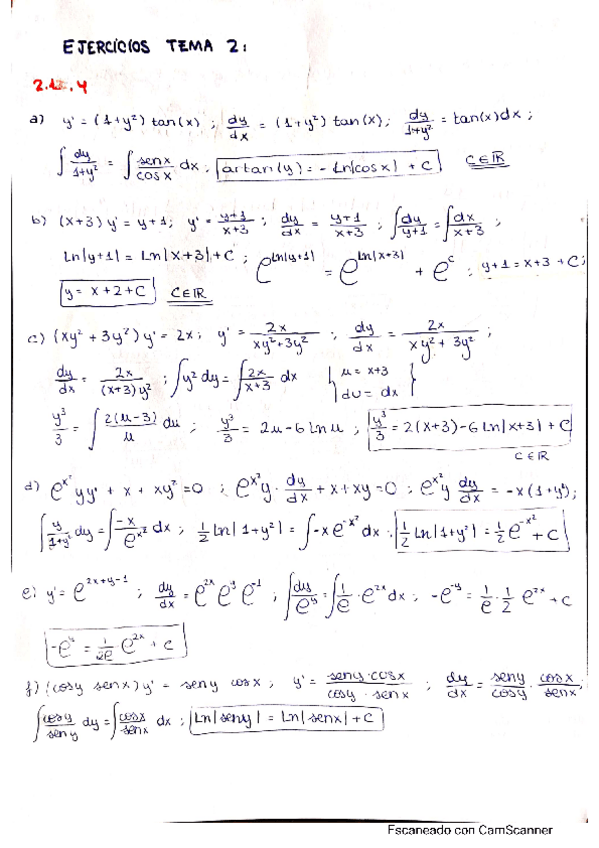 EJERCICIOS TEMA 2:
2.1.4
a) y' = (1+y²) tan(x) ; dy/dx = (1+y²) tan(x) ; dy/1+y² = tan(x)dx ;
∫ dy/1+y² = ∫ senx/cosx dx ; artan(y) = - Ln|cosx| + C C∈ℝ
b) (x+3) y' = y+1 ; y' = y+1/x+3 ; dy/dx = y+1/x+3 ; ∫ dy/y+1 = ∫ dx/x+3 ;
Ln|y+1| = Ln|x+3| + C ; e^Ln|y+1| = e^Ln|x+3| + e^c ; y+1 = x+3 + C ;
y = x+2+C C∈ℝ
c) (xy² + 3y²) y' = 2x ; y' = 2x/xy²+3y² ; dy/dx = 2x/xy²+3y² ;
dy/dx = 2x/(x+3)y² ; ∫ y² dy = ∫ 2x/x+3 dx { u = x+3
du = dx }
y³/3 = ∫ 2(u-3)/u du ; y³/3 = 2u - 6 Ln u ; y³/3 = 2(x+3) - 6 Ln|x+3| + C
C∈ℝ
d) e^x² yy' + x + xy² = 0 ; e^x² y · dy/dx + x + xy = 0 ; e^x² y dy/dx = -x(1+y²) ;
∫ y/1+y² dy = ∫ -x/e^x² dx ; 1/2 Ln|1+y²| = ∫ -x e^-x² dx ; 1/2 Ln|1+y²| = 1/2 e^-x² + C
e) y' = e^2x+y-1 ; dy/dx = e^2x e^y e^-1 ; ∫ dy/e^y = ∫ 1/e · e^2x dx ; -e^-y = 1/e · 1/2 e^2x + C
-e^y = 1/2e · e^2x + C
f) (cosy senx) y' = seny cosx ; y' = seny·cosx/cosy·senx ; dy/dx = seny/cosy · cosx/senx ;
∫ cosy/seny dy = ∫ cosx/senx dx ; Ln|seny| = Ln|senx| + C
Escaneado con CamScanner